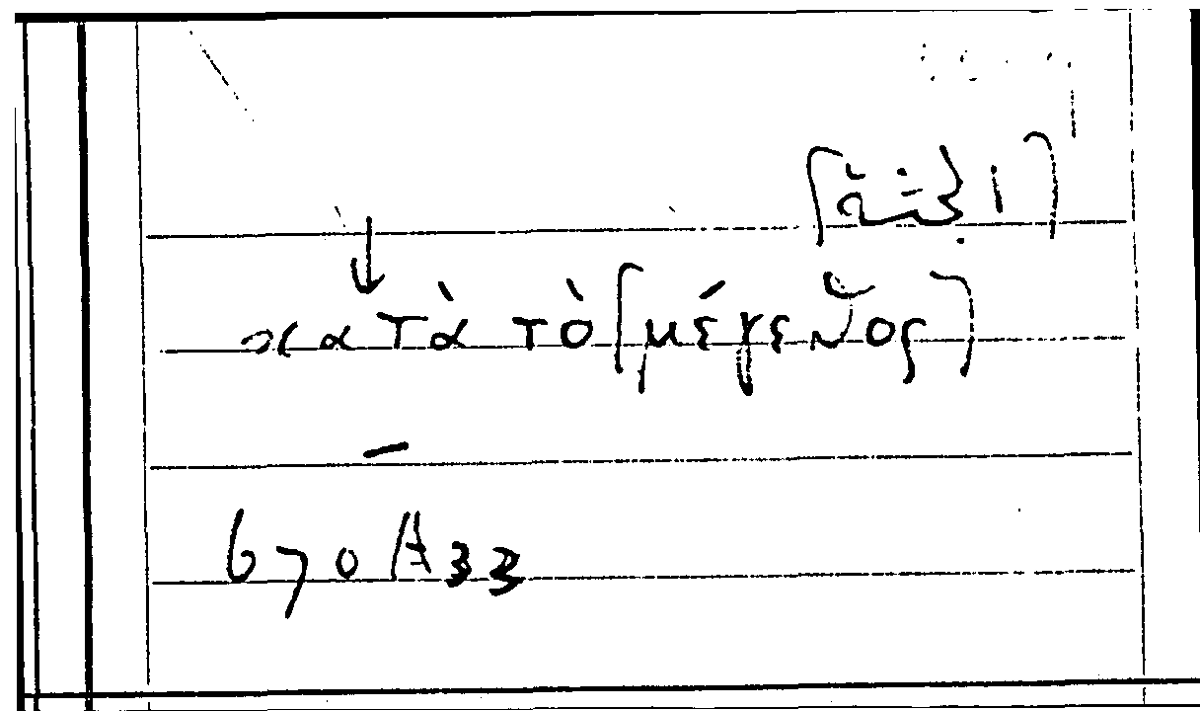 [الجثة]
↓
κατὰ τὸ [μέγεϑος]
–
670 A 33